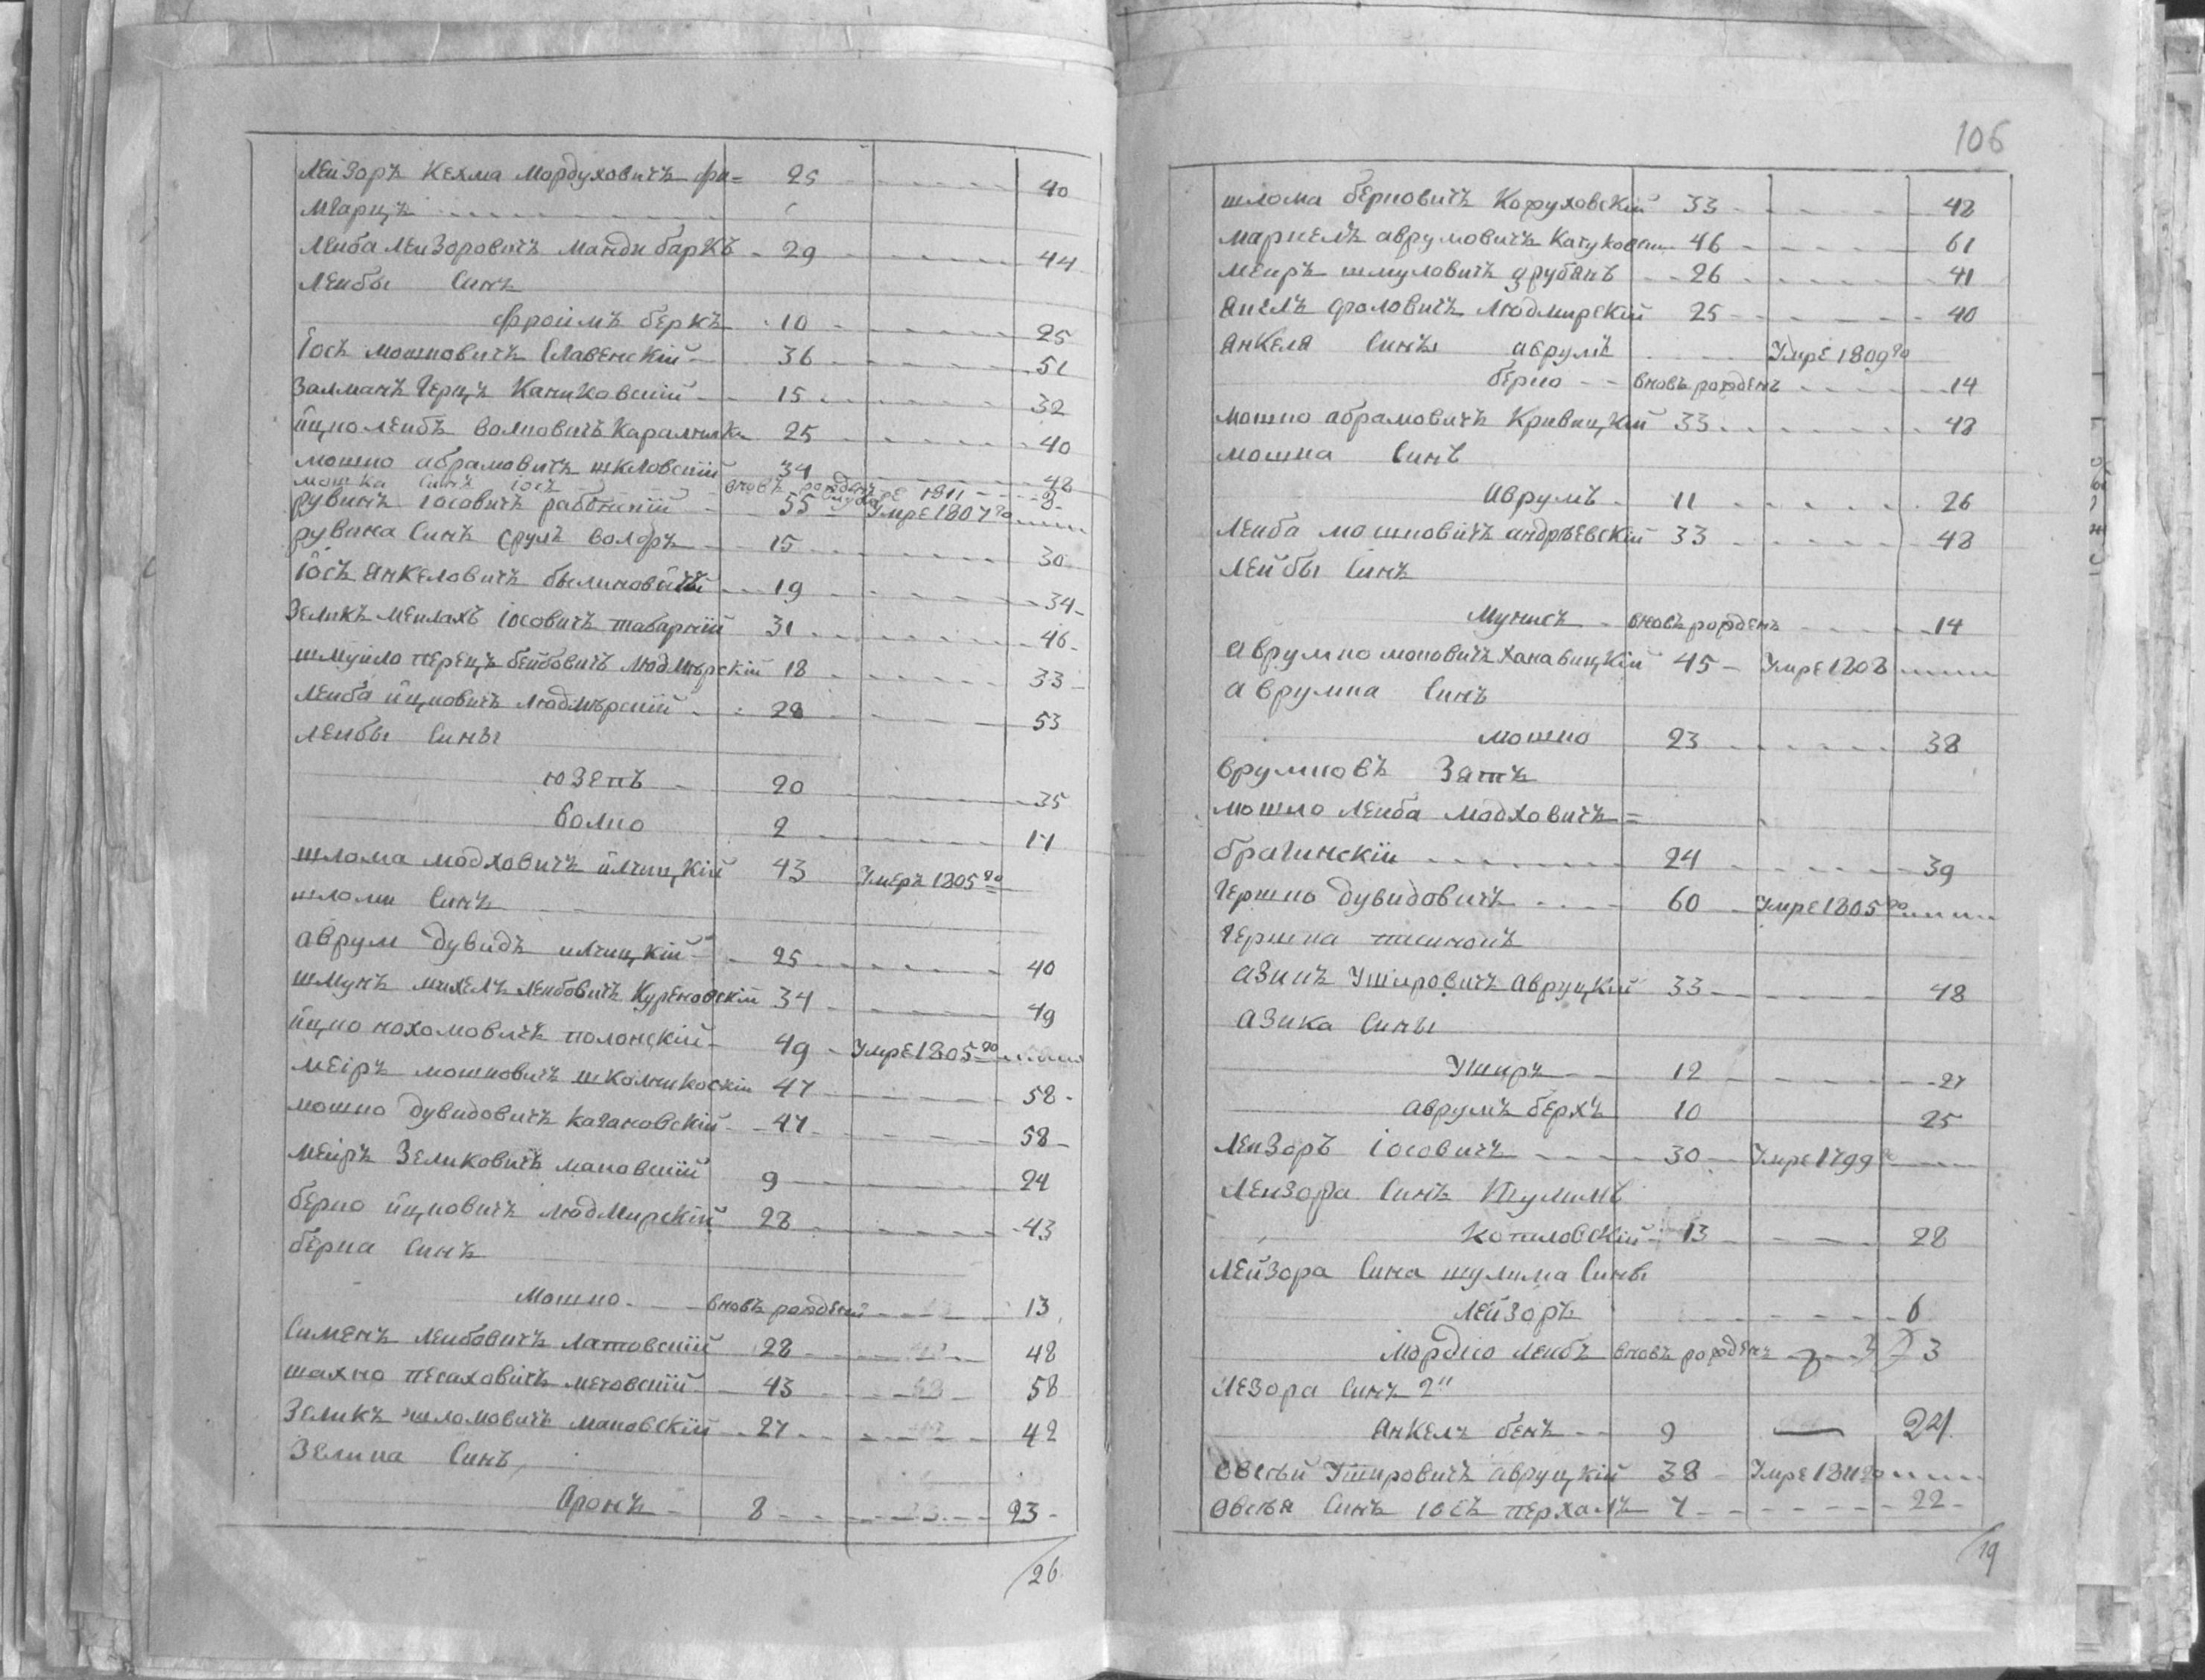 Лейзоръ Кехма Мордуховичъ фи= 25 40
мгарцъ
Леиба Леизоровичъ мандибаркъ 29 44
Леибы Синъ
Фроимъ беркъ 10 25
Іось мошковичъ Славенскій 36 51
Залманъ Герцъ Каниковскій 15 32
ицко леибъ волковичъ 25 40
мошко абрамовичъ шкловскій 34 48
мошка Синъ іось вновъ рожденъ 1811 3
рувинъ іосовичъ 55 Умре 1807го
рувина Синъ Сруль волфъ 15 30
Іось Янкеловичъ 19 34
Зеликъ меилахъ іосовичъ 31 46
шмуило перецъ людмирскій 18 33
Леиба ицковичъ людмирскій 28 53
леибы Сины
юзепъ 20 35
волко 2 17
шлома модховичъ илчицкій 43 Умеръ 1805го
шломи Синъ
аврум дувидъ илчицкій 25 40
шмунъ михелъ леибовичъ Куреновскій 34 49
ицко нохомовичъ полонскій 49 Умре 1805го
меіръ мошковичъ 47 58
мошко дувидовичъ Кагановскій 47 58
меіръ Зеликовичъ маковскій 9 24
берко ицковичъ людмирскій 28 43
берка Синъ
Мошко вновъ рожденъ 13
Сименъ леибовичъ латовскій 28 48
шахно песаховичъ мечовскій 43 58
Зеликъ шломовичъ маковскій 27 42
Зелика Синъ
Аронъ 8 23
26
106
шлома берковичъ Кофуховскій 33 48
маркелъ аврумовичъ 46 61
меиръ шмуловичъ 26 41
Янкелъ фроловичъ людмирскій 25 40
Янкеля Сины аврумъ Умре 1809го
берко вновъ рожденъ 14
мошко абрамовичъ Кривицкій 33 48
мошка Синъ
аврумъ 11 26
Леиба мошковичъ андрѣевскій 33 48
Лейбы Синъ
Мунисъ вновъ рожденъ 14
аврумко моновичъ ханавицкій 45 Умре 1808
аврумка Синъ
мошко 23 38
врумковъ Зять
мошко Леиба модховичъ=
брагинскій 24 39
Гершко дувидовичъ 60 Умре 1805го
Гершка
азикъ Ушировичъ авруцкій 33 48
азика Сины
Уширъ 12 27
аврумъ берхъ 10 25
Леизоръ іосовичъ 30 Умре 1799
Леизора Синъ Шулимъ
Копиловскій 13 28
Лейзора Сина шулима Сины
Лейзоръ 6
Мордко леибъ вновъ рожденъ 3
Лезора Синъ 2й
Янкелъ бенъ 9 24
Овсѣй Ушировичъ авруцкій 38 Умре 1811го
Овсѣя Синъ іось 7 22
19